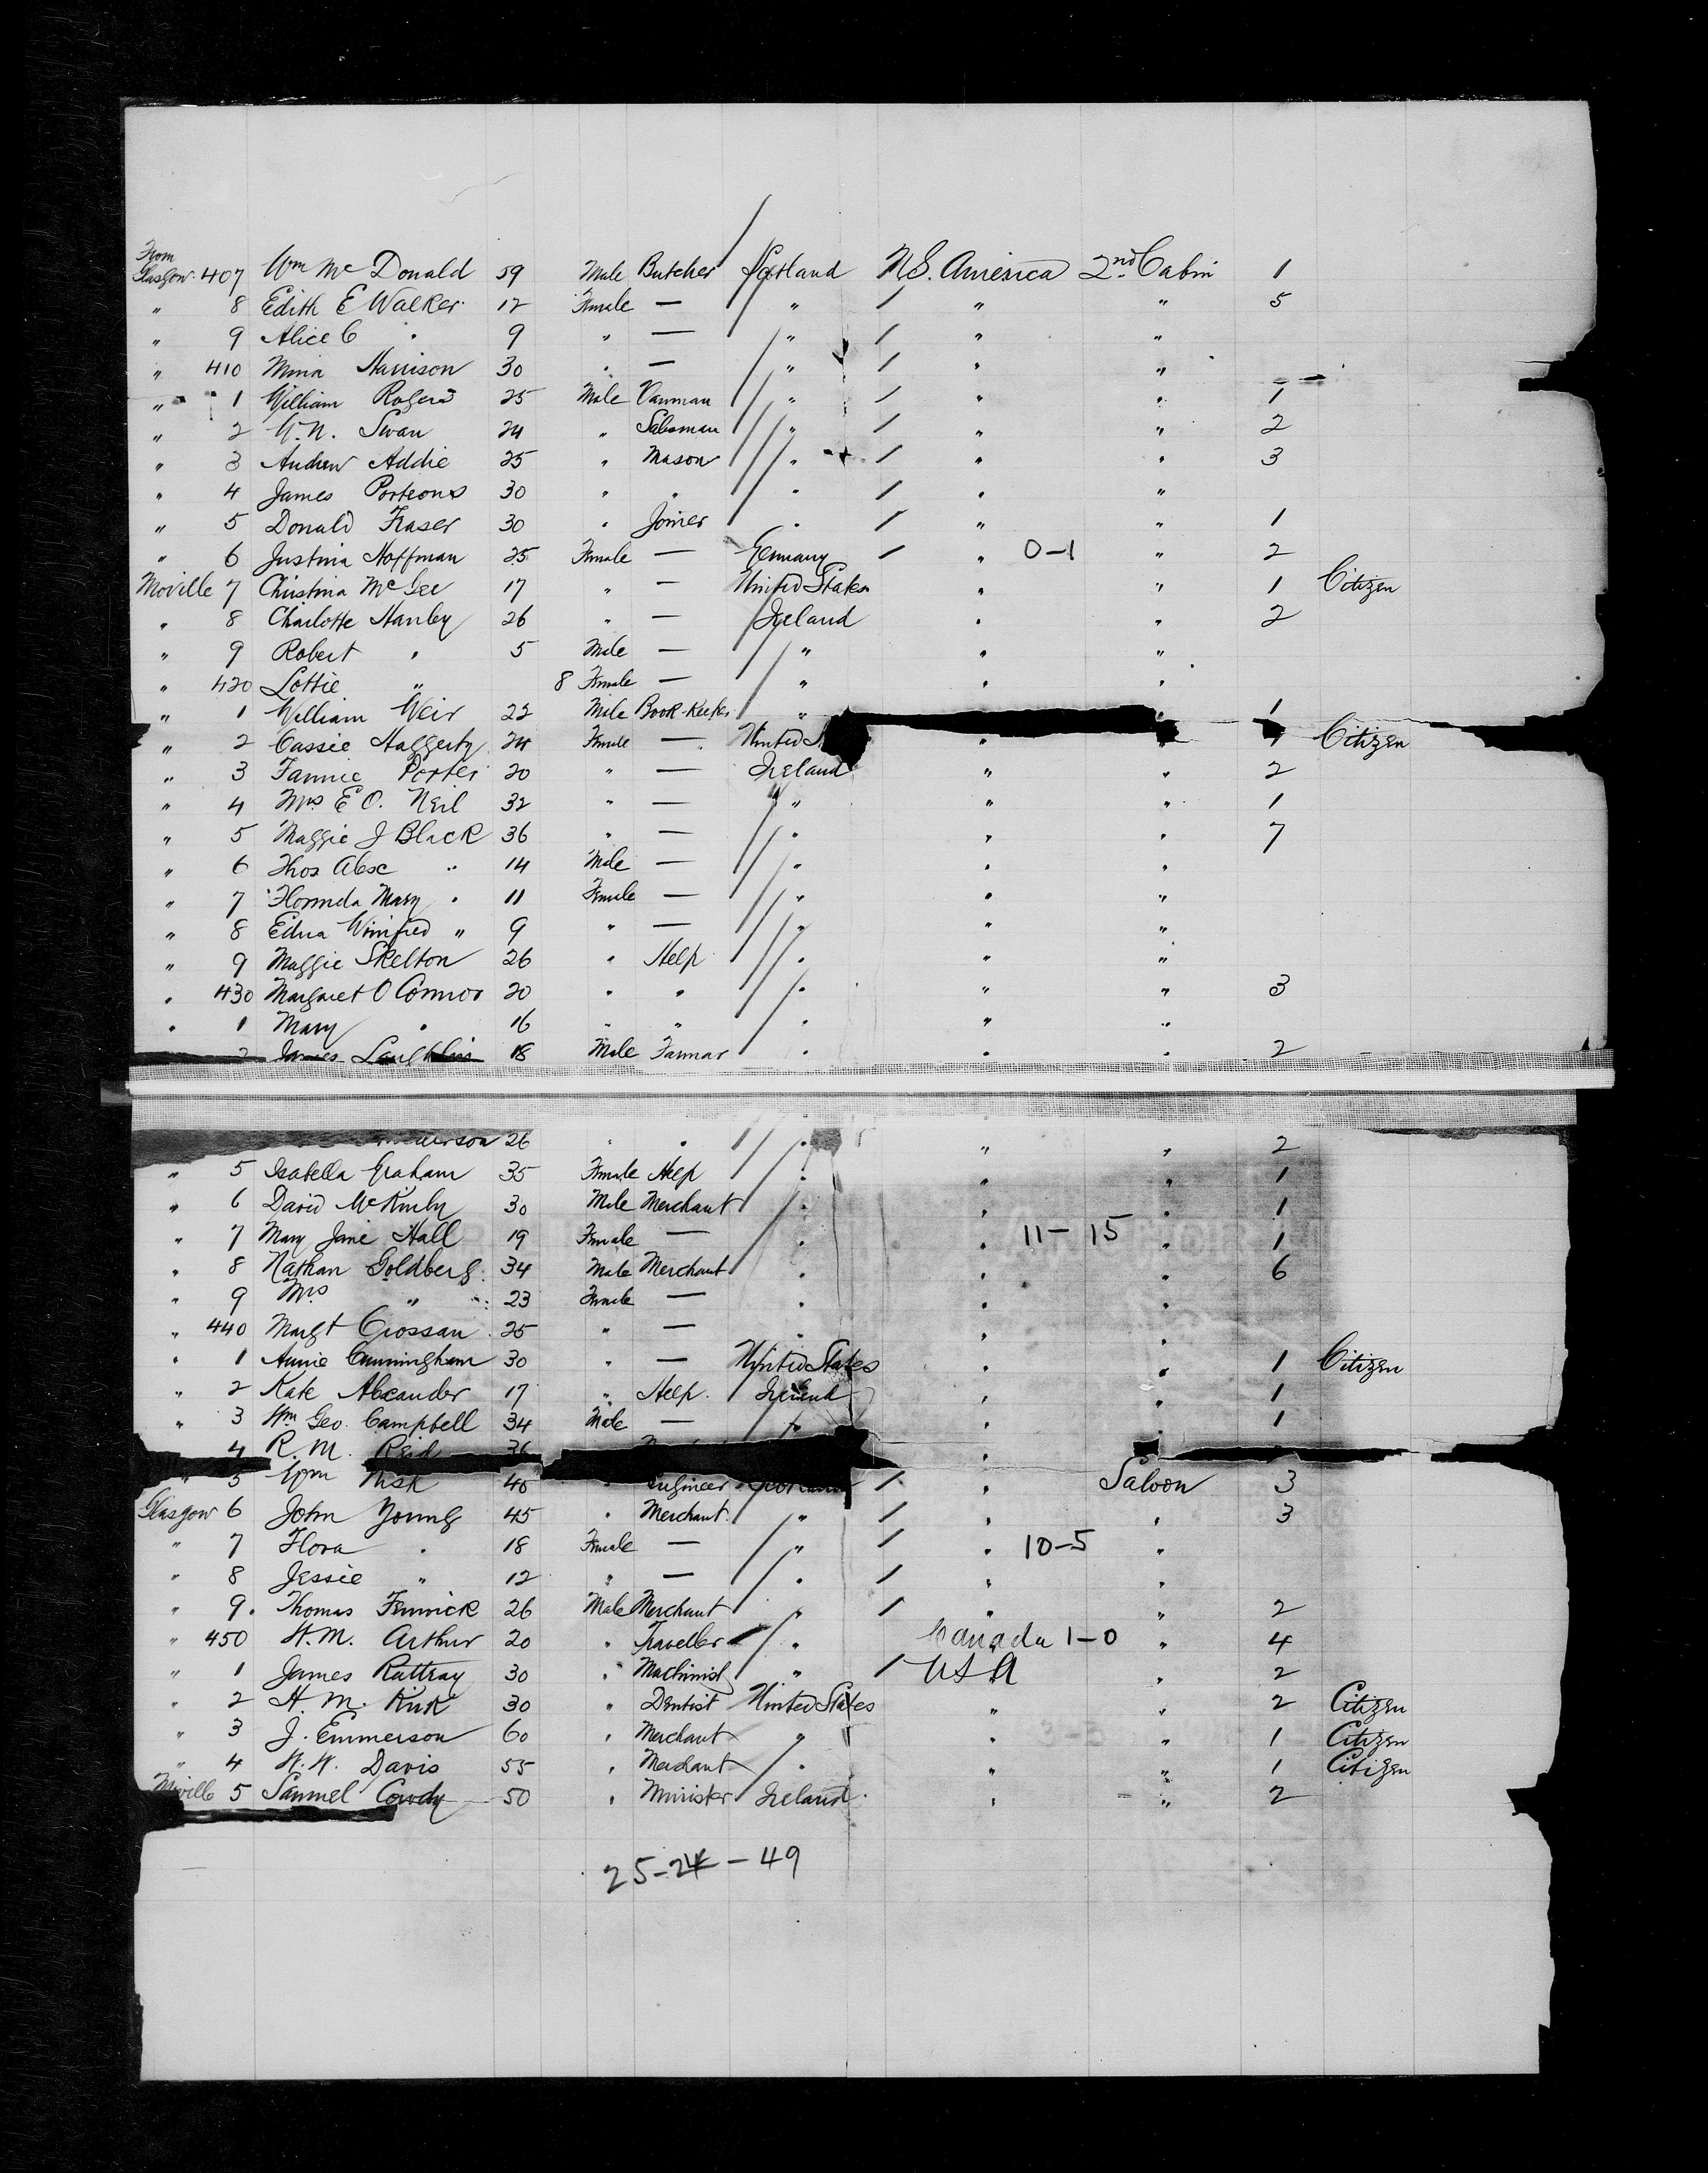 From
Glasgow 407 Wm Mc Donald 59 Male Butcher Scotland U.S. America 2nd Cabin 1
" 8 Edith E Walker 12 Female — " / " " 5
" 9 Alice C " 9 " — " / " "
" 410 Mina Harrison 30 " — " / " "
" 1 William Rogers 25 Male Vanman " / " " 1
" 2 W. N. Swan 24 " Salesman " / " " 2
" 3 Andrew Addie 25 " Mason " / " " 3
" 4 James Porteous 30 " " " / " "
" 5 Donald Fraser 30 " Joiner " / " " 1
" 6 Justina Hoffman 25 Female — Germany / " 0-1 " 2
Moville 7 Christina McGee 17 " — United States " " 1 Citizen
" 8 Charlotte Hanley 26 " — Ireland " " 2
" 9 Robert " 5 Male — " " "
" 420 Lottie " 8 Female — " " "
" 1 William Weir 22 Male Book-Keeper " " 1
" 2 Cassie Haggerty 24 Female — United " " 1 Citizen
" 3 Fannie Porter 20 " — Ireland " " 2
" 4 Mrs E O. Neil 32 " — " " " 1
" 5 Maggie J Black 36 " — " " " 7
" 6 Thos Alexe " 14 Male — " " "
" 7 Mary " 11 Female — " " "
" 8 Edna Winifred " 9 " — " " "
" 9 Maggie Skelton 26 " Help " " "
" 430 Margaret O Connor 20 " " " " " 3
" 1 Mary " 16 " " " " "
2 James Laughlin 18 Male Farmar " " " 2
26 " " " " " 2
" 5 Isabella Graham 35 Female Help " " " 1
" 6 David McKinley 30 Male Merchant " " " 1
" 7 Mary Jane Hall 19 Female — " " 11-15 " 1
" 8 Nathan Goldberg 34 Male Merchant " " " 6
" 9 Mrs " 23 Female — " " "
" 440 Margt Crossan 25 " — " " "
" 1 Annie Cunningham 30 " — United States " " 1 Citizen
" 2 Kate Alexander 17 " Help Ireland " " 1
" 3 Wm Geo. Campbell 34 Male — " " " 1
4 R. M. Reid 36 "
" 5 Wm 40 " Engineer / " Saloon 3
Glasgow 6 John Young 45 " Merchant " / " " 3
" 7 Flora " 18 Female — " / " 10-5 "
" 8 Jessie " 12 " — " / " "
" 9 Thomas Fenwick 26 Male Merchant " / " " 2
" 450 W. M. Arthur 20 " Traveller " Canada 1-0 " 4
" 1 James Rattray 30 " Machinist " / USA " 2
" 2 H. M. Kirk 30 " Dentist United States " " 2 Citizen
" 3 J. Emmerson 60 " Merchant " " " 1 Citizen
" 4 W. W. Davis 55 " Merchant " " " 1 Citizen
Moville 5 Samuel Cowdy 50 " Minister Ireland " " 2
25-24-49